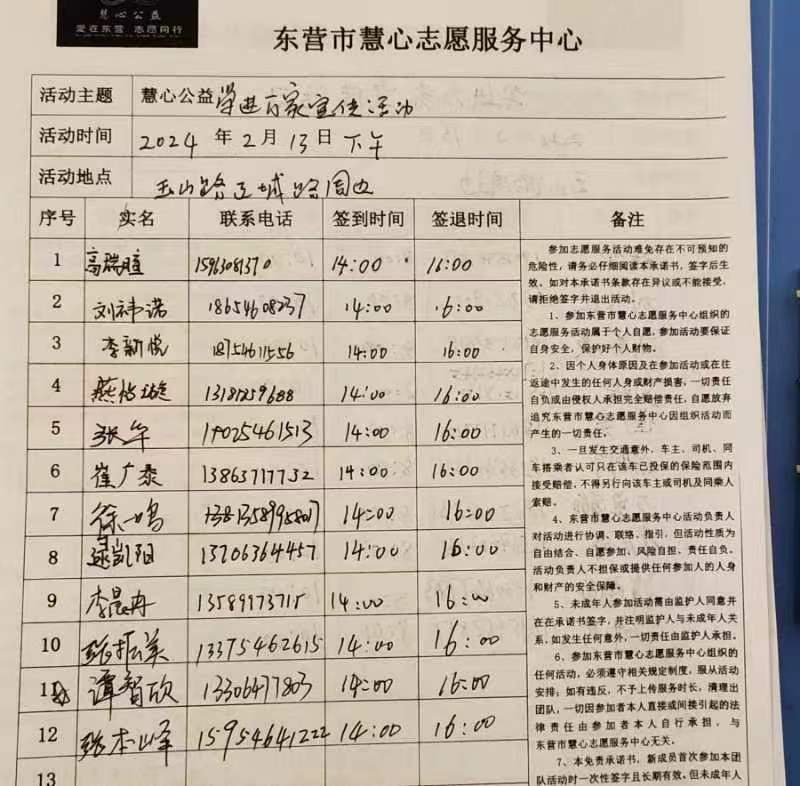 慧心公益
爱在东营 志愿同行
东营市慧心志愿服务中心
活动主题 慧心公益 万家宣传活动
活动时间 2024年2月13日下午
活动地点 玉山路运城路周边
序号 实名 联系电话 签到时间 签退时间 备注
1 高瑞 14:00 16:00
2 刘祎诺 18654608037 14:00 16:00
3 李新悦 18754611556 14:00 16:00
4 燕怡璇 13181259688 14:00 16:00
5 张午 14:00 16:00
6 崔广泰 13863717732 14:00 16:00
7 徐一鸣 14:00 16:00
8 逯凯阳 13706364457 14:00 16:00
9 李晨冉 13589973715 14:00 16:00
10 张振美 13375462615 14:00 16:00
11 谭智欣 13306477803 14:00 16:00
12 张本峰 15954641222 14:00 16:00
13
参加志愿服务活动难免存在不可预知的
危险性，请务必仔细阅读本承诺书，签字后生
效。如对本承诺书条款存在异议或不能接受，
请拒绝签字并退出活动。
1、参加东营市慧心志愿服务中心组织的
志愿服务活动属于个人自愿，参加活动要保证
自身安全，保护好个人财物。
2、因个人身体原因及在参加活动或在往
返途中发生的任何人身或财产损害，一切责任
自负或由侵权人承担完全赔偿责任，自愿放弃
追究东营市慧心志愿服务中心因组织活动而
产生的一切责任。
3、一旦发生交通意外，车主、司机、同
车搭乘者认可只在该车已投保的保险范围内
接受赔偿，不得另行向该车主或司机及同乘人
索赔。
4、东营市慧心志愿服务中心活动负责人
对活动进行协调、联络、指引，但活动性质为
自由结合、自愿参加、风险自担、责任自负。
活动负责人不担保或提供任何参加人的人身
和财产的安全保障。
5、未成年人参加活动需由监护人同意并
在在承诺书签字，并注明监护人与未成年人关
系，如发生任何意外，一切责任由监护人承担。
6、参加东营市慧心志愿服务中心组织的
任何活动，必须遵守相关规定制度，服从活动
安排；如有违反，不予上传服务时长，清理出
团队，一切因参加者本人直接或间接引起的法
律责任由参加者本人自行承担，与
东营市慧心志愿服务中心无关。
7、本免责承诺书，新成员首次参加本团
队活动时一次性签字且长期有效，但未成年人